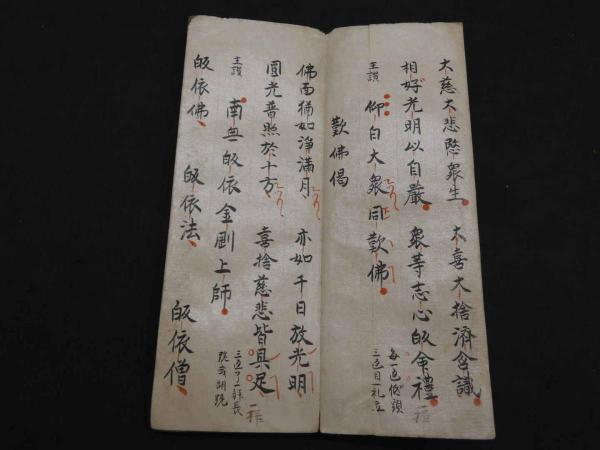 大慈大悲愍衆生 大喜大捨濟含識
相好光明以自嚴 衆等志心皈命禮
一拜
主讃 仰白大衆同歎佛
歎佛偈
佛面猶如淨滿月 亦如千日放光明
圓光普照於十方 喜捨慈悲皆具足
一拜
主讃 南無皈依金剛上師
皈依佛 皈依法 皈依僧